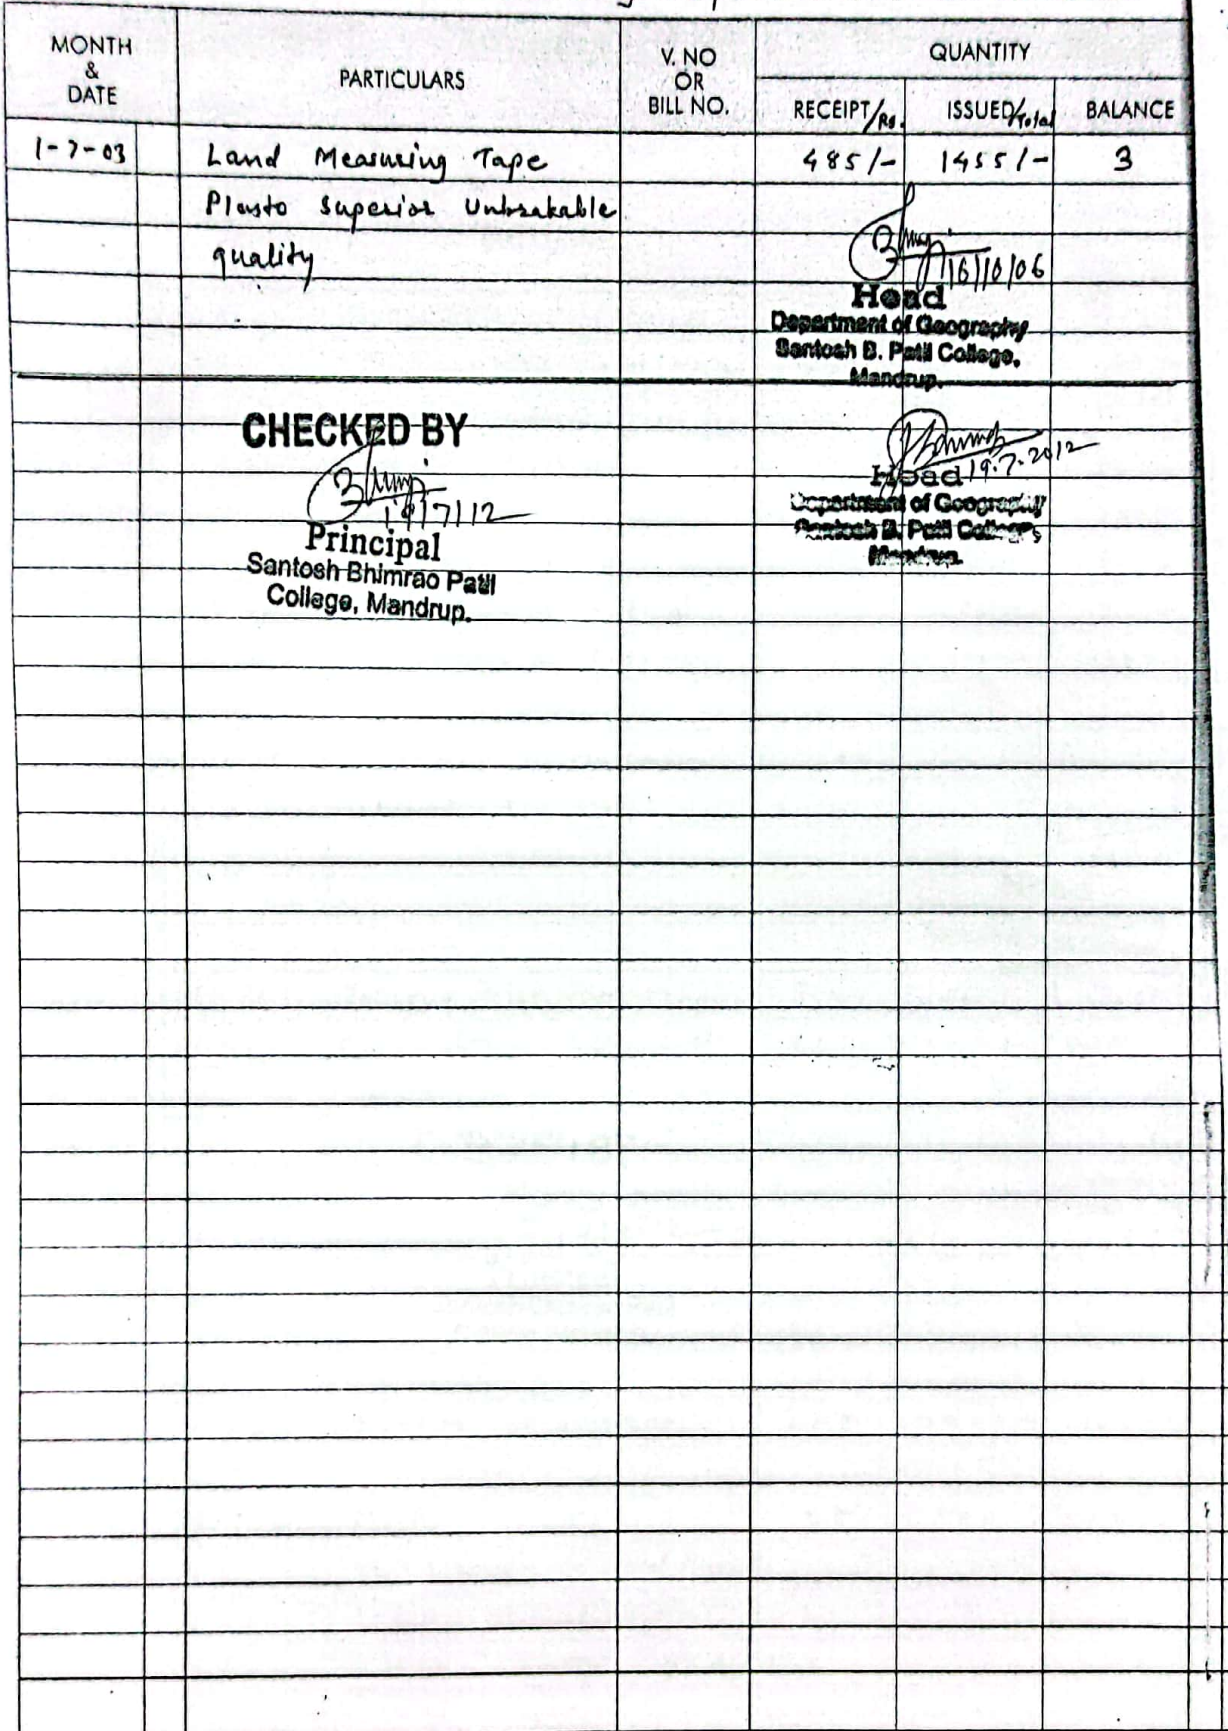 MONTH & DATE PARTICULARS V. NO OR BILL NO. QUANTITY
RECEIPT/Rs. ISSUED/Total BALANCE
1-7-03 Land Measuring Tape 485/- 1455/- 3
Plasto Superior Unbrakable
quality
16/10/06
Head
Department of Geography
Santosh B. Patil College,
Mandrup.
CHECKED BY
19/7/12
Principal
Santosh Bhimrao Patil
College, Mandrup.
Head 19.7.2012
Department of Geography
Santosh B. Patil College,
Mandrup.